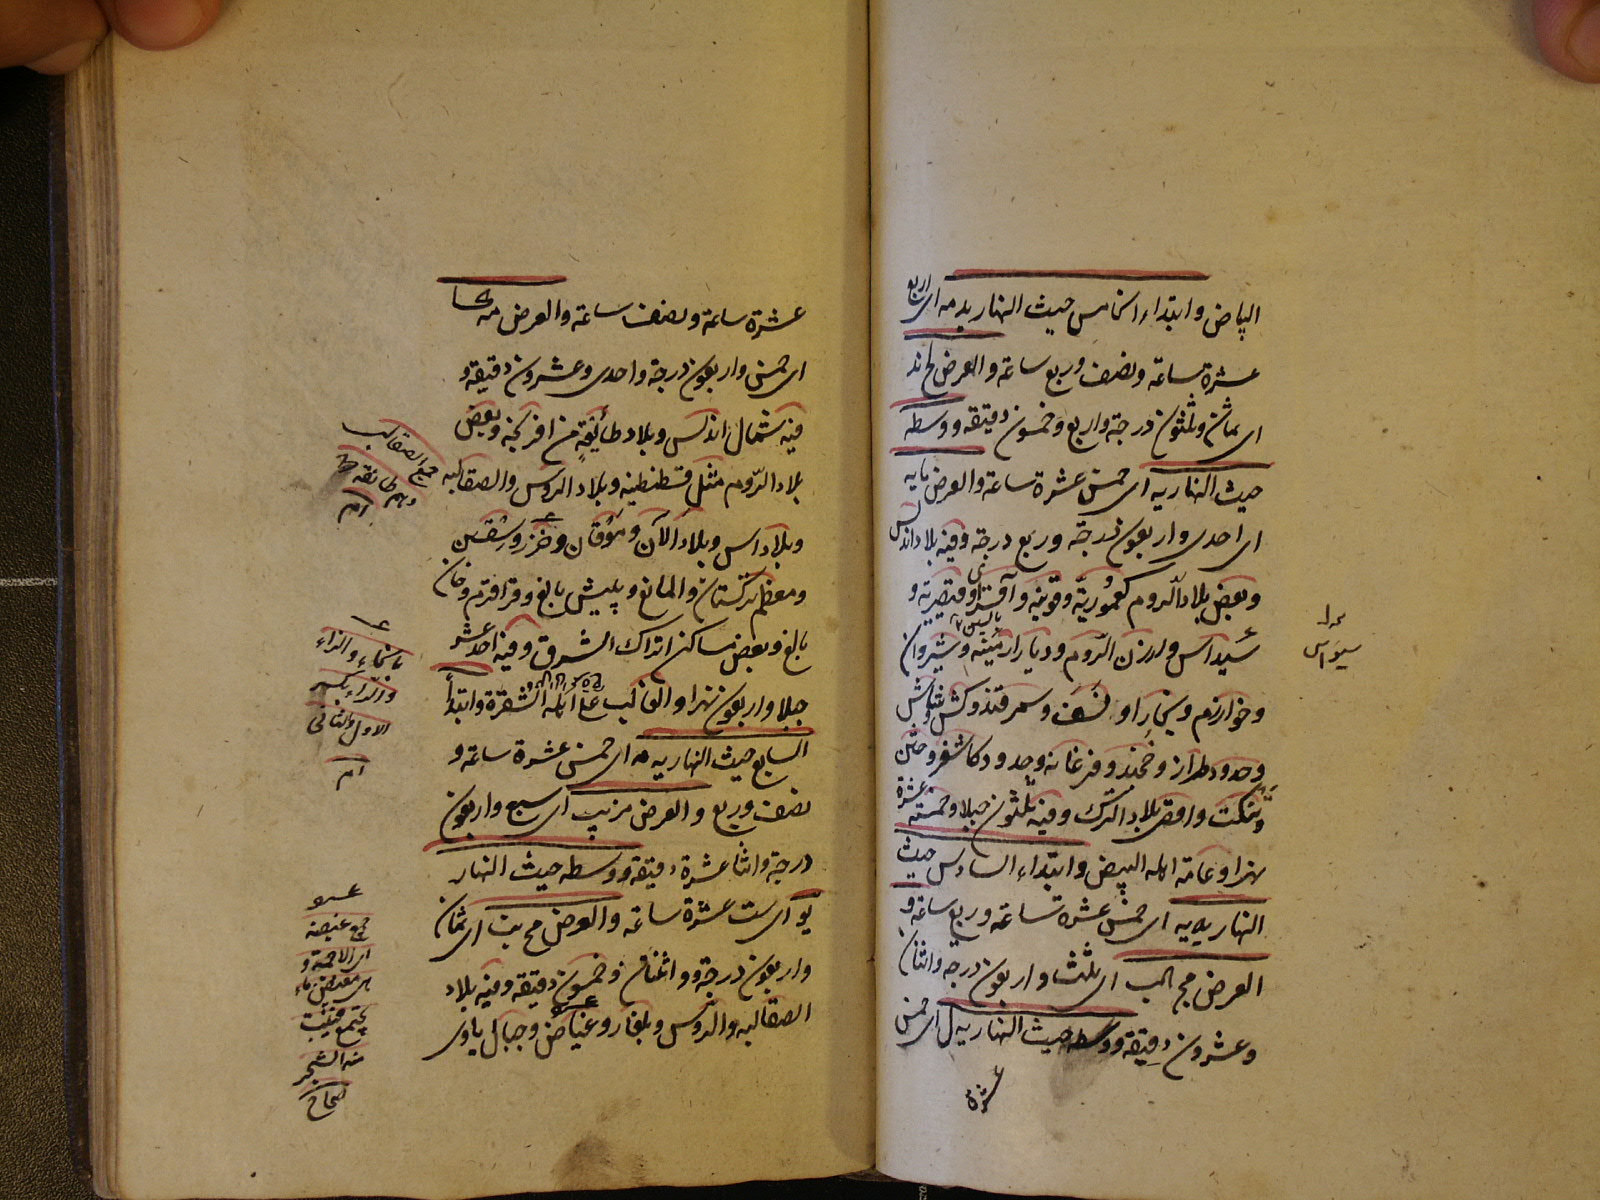 البياض وابتداء الخامس حيث النهار يد مه اى اربع
عشرة ساعة ونصف وربع ساعة والعرض لح ند
اى ثمان وثلثون درجة واربع وخمسون دقيقة ووسطه
حيث النهار يه اى خمس عشرة ساعة والعرض ما يه
اى احدى واربعون درجة وربع درجة وفيه بلاد اندلس
وبعض بلاد الروم كعمورية وقونية وآقسرا وقيصرية و
سيواس وارزن الروم وديار ارمينه وشيروان
وخوارزم وبخارا ونسف وسمرقند وكش
وحدود طراز وخجند وفرغانه وحدود كاشغر وختن
وافق بلاد الترك وفيه ثلثون جبلا وخمسة عشرة
نهرا وعامة اهله البيض وابتداء السادس حيث
النهار يه يه اى خمس عشرة ساعة وربع ساعة و
العرض مج كب اى ثلث واربعون درجة واثنان
وعشرون دقيقة ووسطه حيث النهار يه ل اى خمس
عشرة
سيواس
عشرة ساعة ونصف ساعة والعرض مه كا
اى خمس واربعون درجة واحدى وعشرون دقيقة و
فيه شمال اندلس وبلاد طائفة من افرنجة وبعض
بلاد الروم مثل قسطنطنيه وبلاد الروس والصقالبه
وبلاد اس وبلاد الآن وموقان وخزر وسقسين
ومعظم تركستان والمالغ وبيش بالغ وقراقرم وخان
بالغ وبعض مساكن اتراك الشرق وفيه احد عشر
جبلا واربعون نهرا والغالب على اهله الشقرة وابتداء
السابع حيث النهار يه مه اى خمس عشرة ساعة و
نصف وربع والعرض مز يب اى سبع واربعون
درجة واثنا عشرة دقيقة ووسطه حيث النهار
يو اى ست عشرة ساعة والعرض مح نب اى ثمان
واربعون درجة واثنان وخمسون دقيقة وفيه بلاد
الصقالبه والروس وبلغار وغياض وجبال ياوى
جمع الصقالب
وهم طائفة
بالخاء والزاء
والراء بكسر
الاول والثانى
جمع غيضة
اى الاجمة و
هى مغيض ماء
يجتمع فينبت
منه الشجر
صحاح